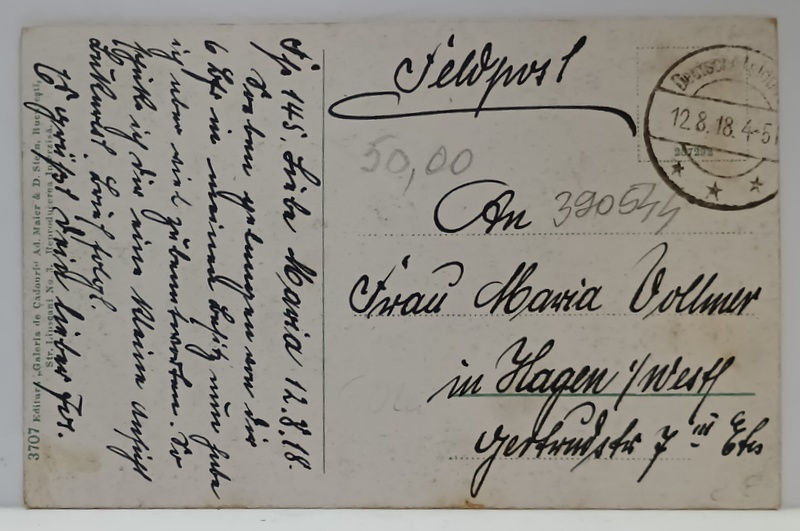 Feldpost
Deutsche
12.8.18. 4-5
267232
50,00
An 390544
Frau Maria Vollmer
in Hagen i/Westf
Gertrudstr 7 III Etg
Fp 145. Liebe Maria 12.8.18.
Soeben gelangen von dir
6 Bfe in meinen Besitz nun habe
ich aber viel zu beantworten. So
schicke ich dir eine kleine Ansicht
Brief folgt.
Es grüßt dich lieber
3707 Editura „Galeria de Cadouri" Ad. Maier & D. Stern, Bucureşti,
Str. Lipscani No. 3. Reproducerea interzisă.